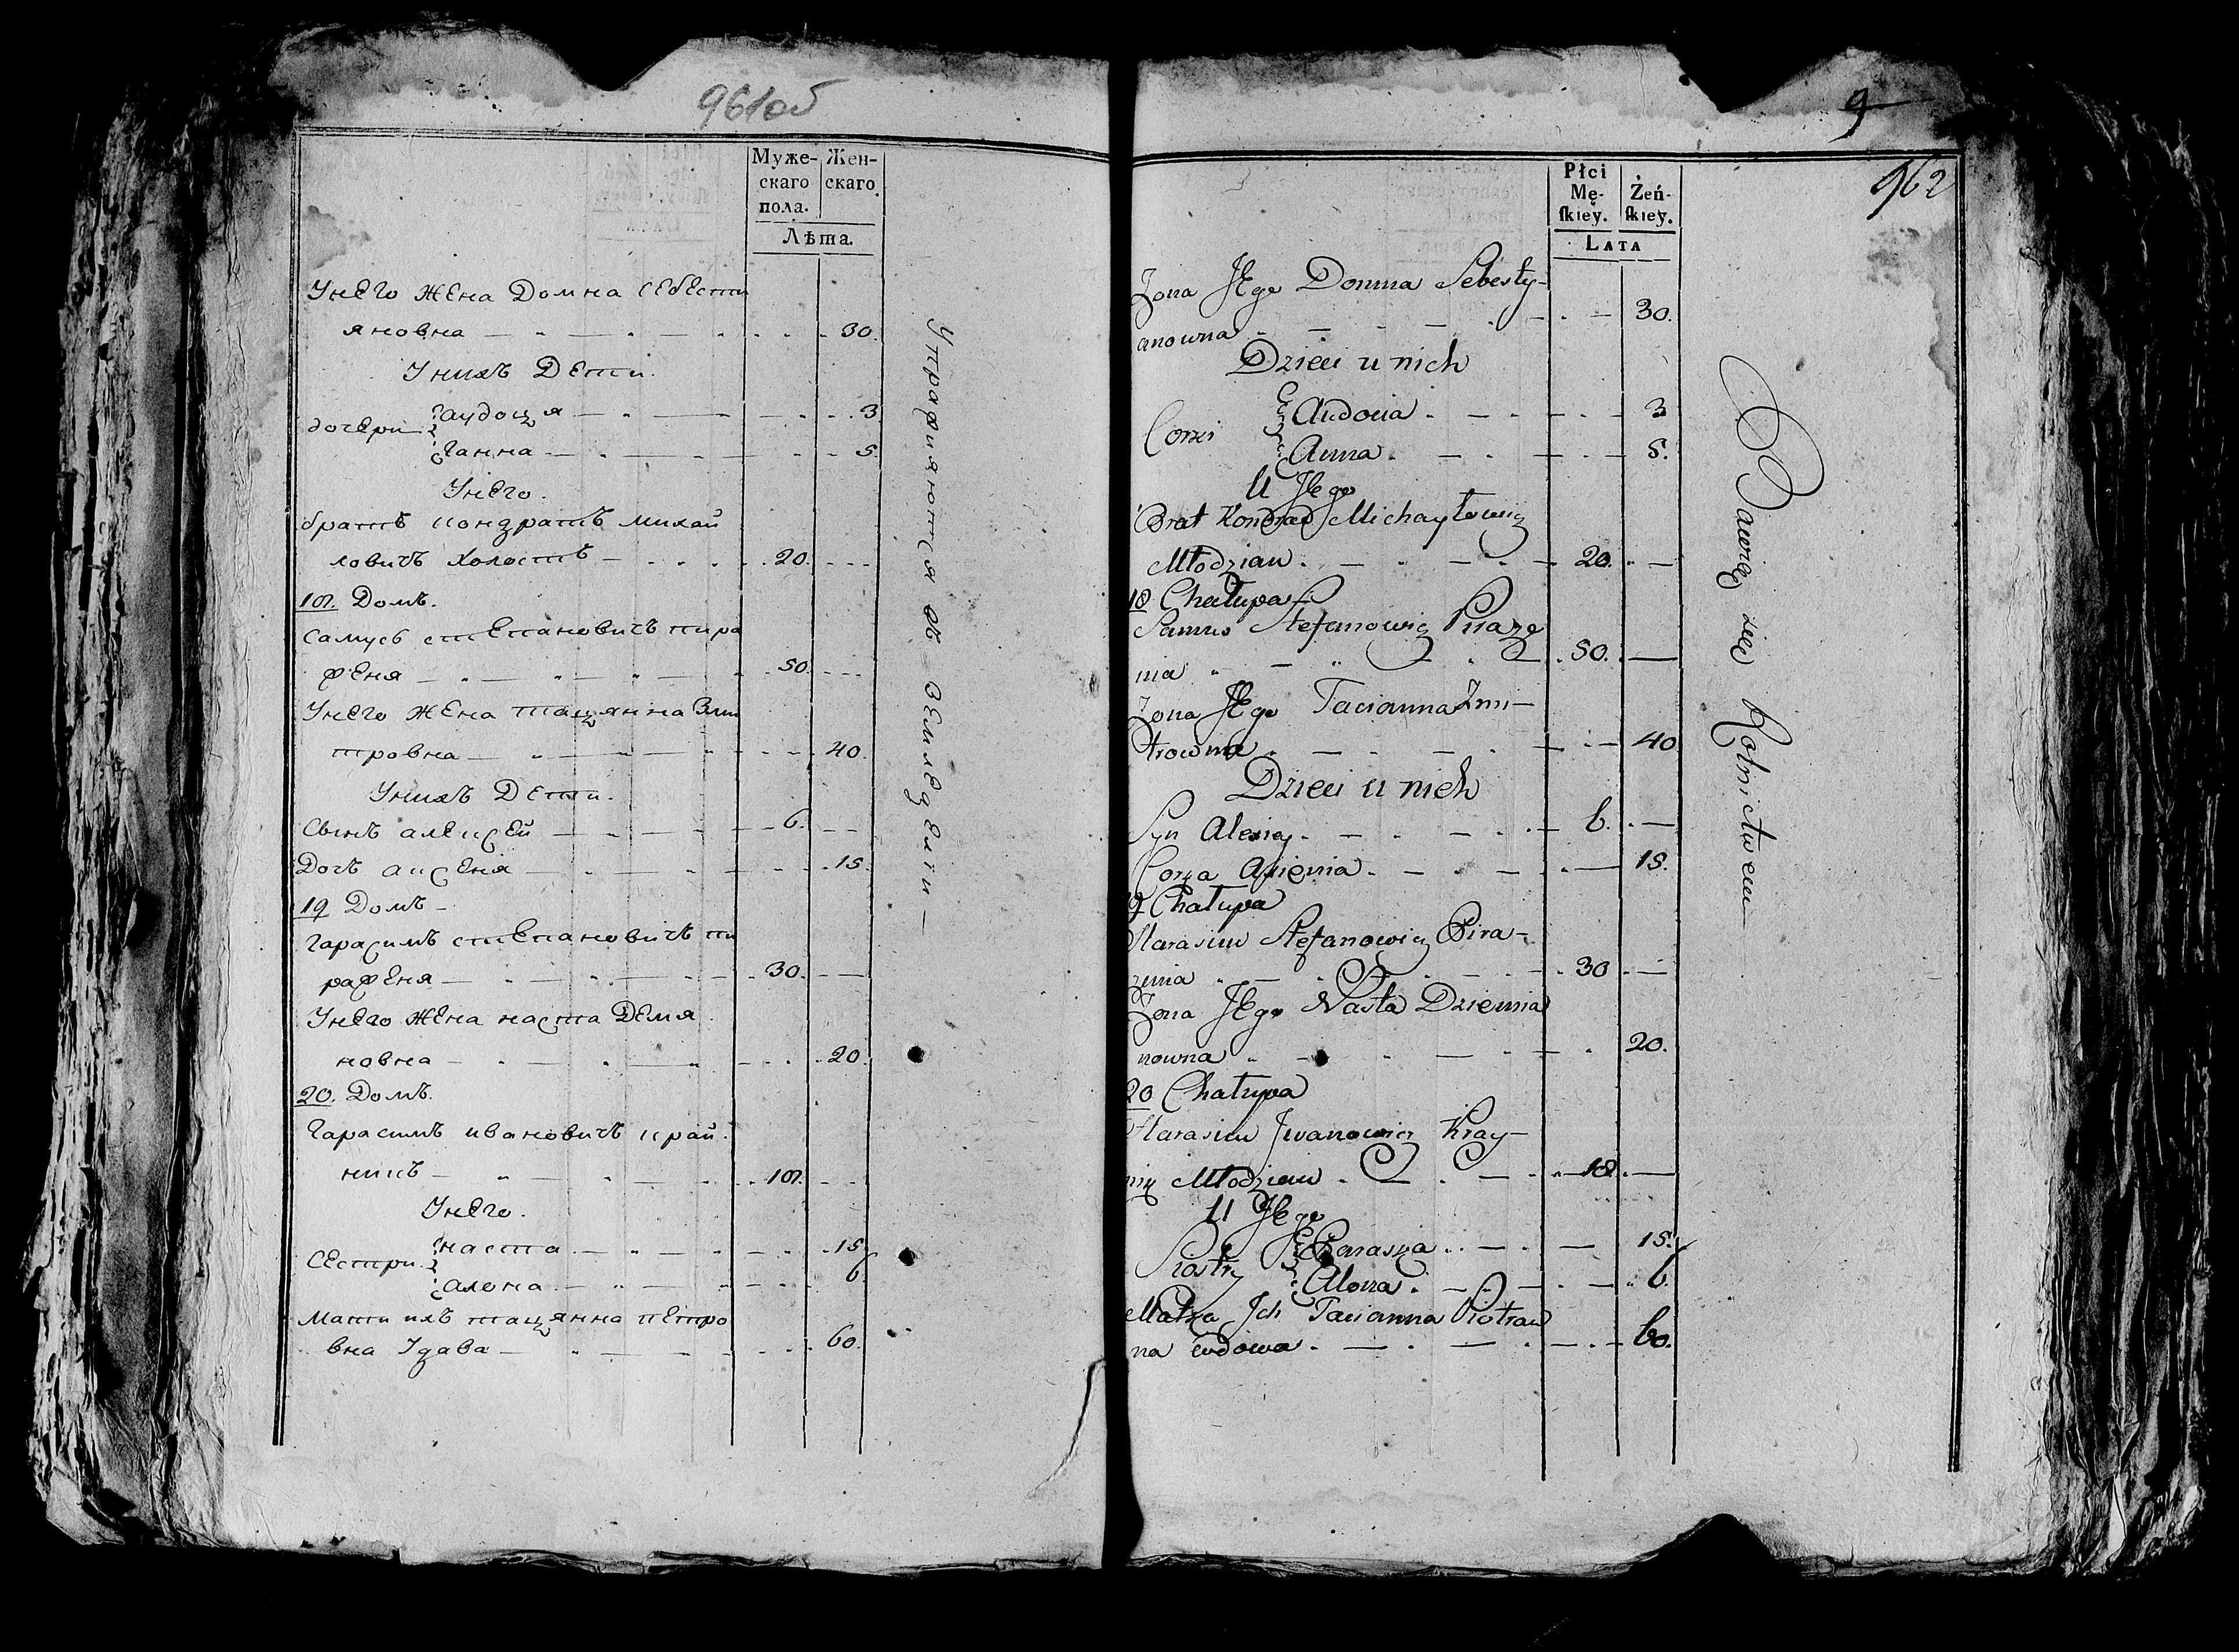 961об
Муже-
скаго
пола.
Жен-
скаго.
Лѣта.
Унего жена Домна Себести
яновна — 30.
Унихъ Дети.
дочери аудоця — 3
Ганна — 5.
Унего.
братъ кондратъ михай
ловичъ холостъ — 20.
18. Домъ.
Самусь степановичъ пира
феня — 50.
Унего жена тацянна Зми
тровна — 40.
Унихъ Дети.
Сынъ алексей — 6.
Дочъ аксеня — 15.
19 Домъ —
Гарасимъ степановичъ пи
рафеня — 30.
Унего жена наста Демя
новна — 20.
20. Домъ.
Гарасимъ ивановичъ край
никъ — 18.
Унего.
Сестри наста — 15.
алена — 6.
Мати ихъ тацянна петро
вна Удава — 60.
Упрофияются въ земледелiи —
9
962
Płci
Mę-
ſkiey.
Żeń-
ſkiey.
LATA
Zona Jego Domna Sebesty-
anowna — 30.
Dzieci u nich
Corki Audocia — 3
Anna — 5.
U Jego
Brat Kondrad Michayłowicz
Młodzian — 20.
18 Chałupa
Samus Stefanowicz
nia — 50.
Zona Jego Tacianna Zmi-
trowna — 40
Dzieci u nich
Syn Alexiey — 6.
Corka Axienia — 15.
19 Chałupa
Harasim Stefanowicz Pira-
zenia — 30
Zona Jego Nasta Dziemia
nowna — 20.
20 Chałupa
Harasim Jwanowicz Kray-
nik Młodzian — 18
U Jego
Siostry Paraska — 15.
Alona — 6.
Matka Jch Tacianna Piotrow
na wdowa — 60.
Bawią się Rolnictwem